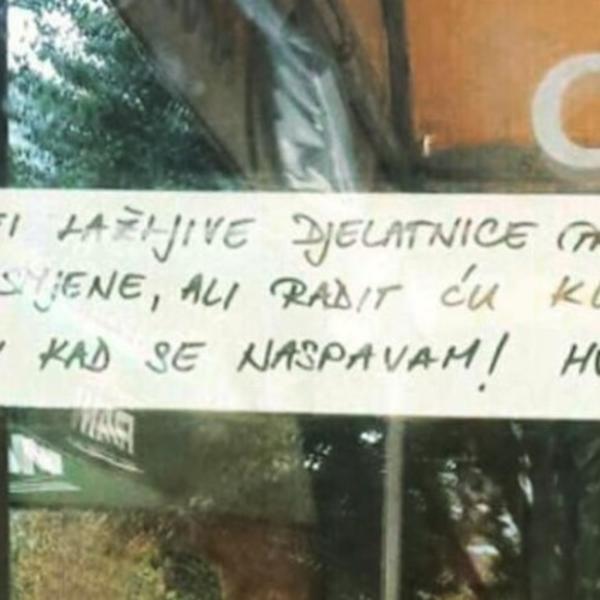 LAŽLJIVE DJELATNICE
SMJENE, ALI RADIT ĆU
KAD SE NASPAVAM!